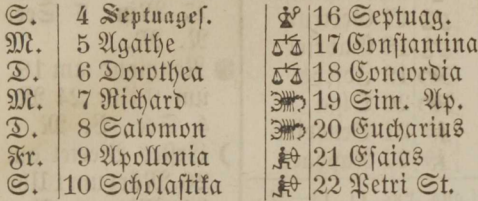 S. 4 Septuages. 16 Septuag.
M. 5 Agathe 17 Constantina
D. 6 Dorothea 18 Concordia
M. 7 Richard 19 Sim. Ap.
D. 8 Salomon 20 Eucharius
Fr. 9 Apollonia 21 Esaias
S. 10 Scholastika 22 Petri St.